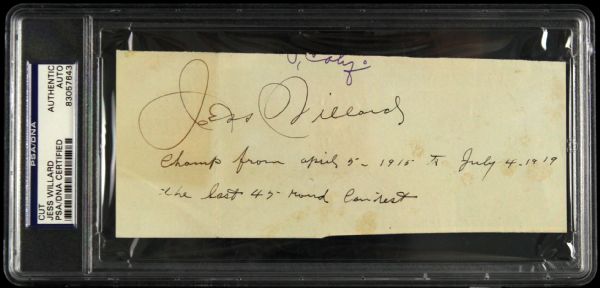 PSA/DNA
CUT
JESS WILLARD
PSA/DNA CERTIFIED
AUTHENTIC
AUTO
83057643
, Calif.
Jess Willard
Champ from april 5- 1915 to July 4-1919
the last 45 round Contest